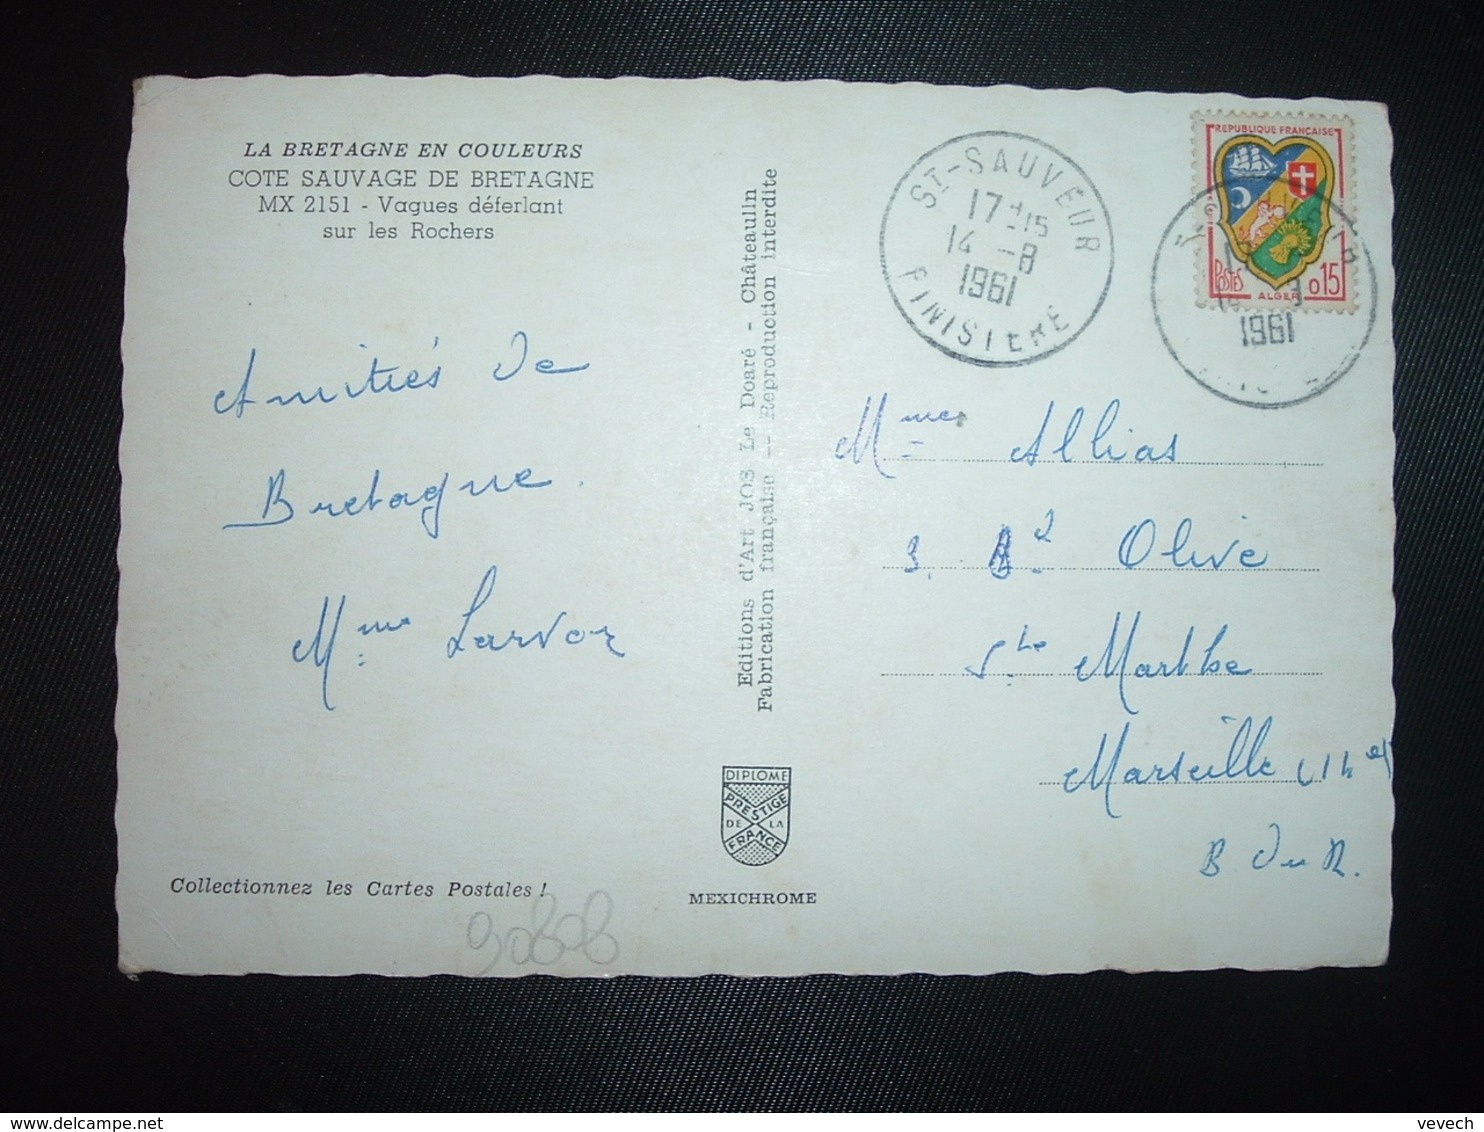 LA BRETAGNE EN COULEURS
COTE SAUVAGE DE BRETAGNE
MX 2151 - Vagues déferlant
sur les Rochers
Amitiés de
Bretagne.
Mme Larvor
Collectionnez les Cartes Postales !
90808
Editions d'Art JOS Le Doaré - Châteaulin
Fabrication française -- Reproduction interdite
DIPLOME
PRESTIGE
DE LA
FRANCE
MEXICHROME
ST-SAUVEUR
17 H 15
14 -8
1961
FINISTERE
REPUBLIQUE FRANÇAISE
POSTES
ALGER
0,15
1961
Mme Allias
3. Bd Olive
Ste Marthe
Marseille
B. du R.
vevech